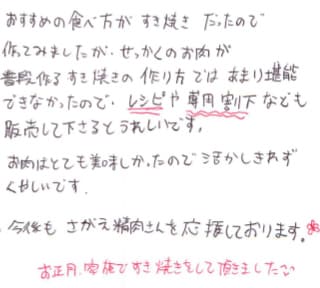 おすすめの食べ方が すき焼き だったので
作ってみましたが、せっかくのお肉が
普段作る すき焼きの 作り方では あまり堪能
できなかったので、レシピや 専用割下なども
販売して下さるとうれしいです。
お肉はとても美味しかったので 活かしきれず
くやしいです.
今後も さがえ精肉さんを 応援しております。
お正月、家族ですき焼きをして頂きました